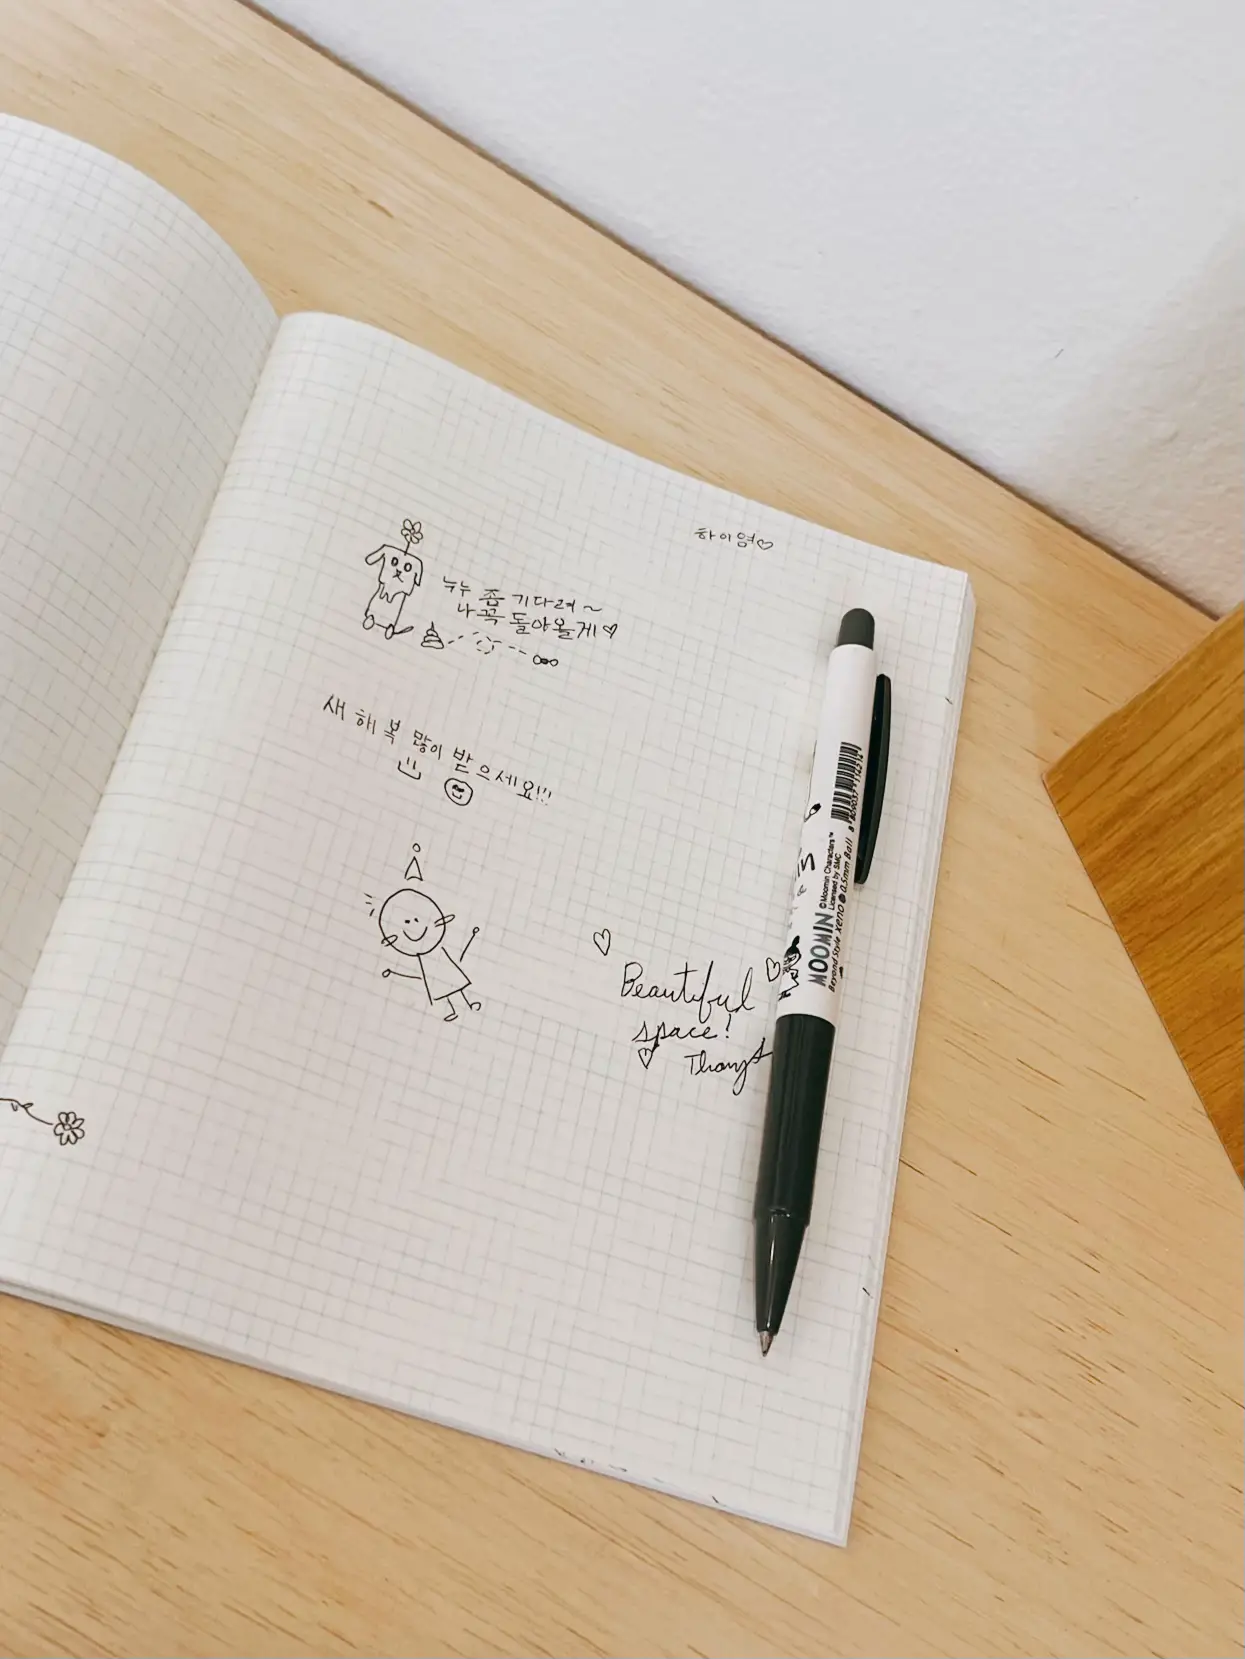 하이염♡
누누 좀 기다려~
나 꼭 돌아올게♡
새해 복 많이 받으세요!!!
Beautiful
space!
MOOMIN
© Moomin Characters™
Licensed by SMC
Beyond Style XENO 0.5mm Ball